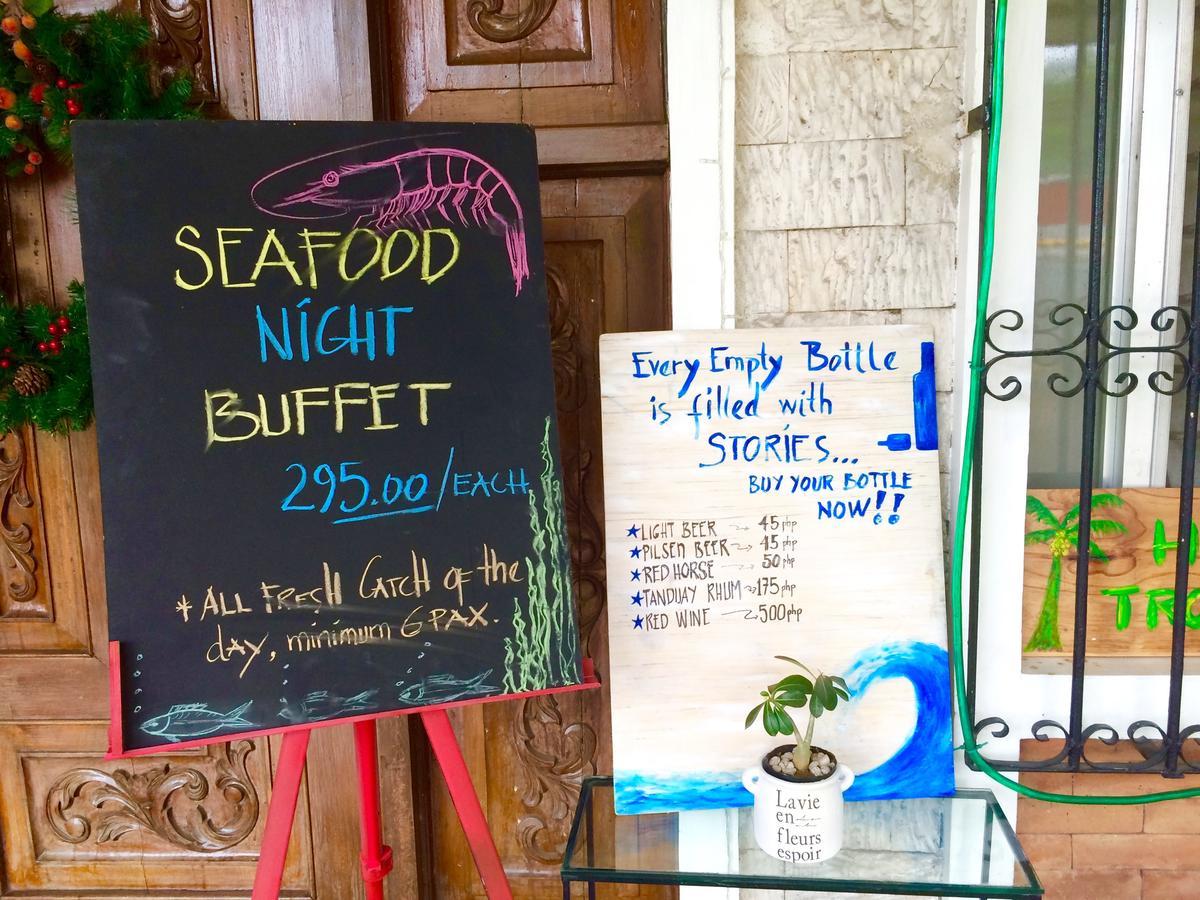 SEAFOOD
NIGHT
BUFFET
295.00/EACH
* ALL FRESH CATCH OF the
day, minimum 6 PAX.
Every Empty Bottle
is filled with
STORIES...
BUY YOUR BOTTLE
NOW!!
★LIGHT BEER → 45php
★PILSEN BEER → 45php
★RED HORSE → 50php
★TANDUAY RHUM → 175php
★RED WINE → 500php
La vie
en
fleurs
espoir
H
TRO